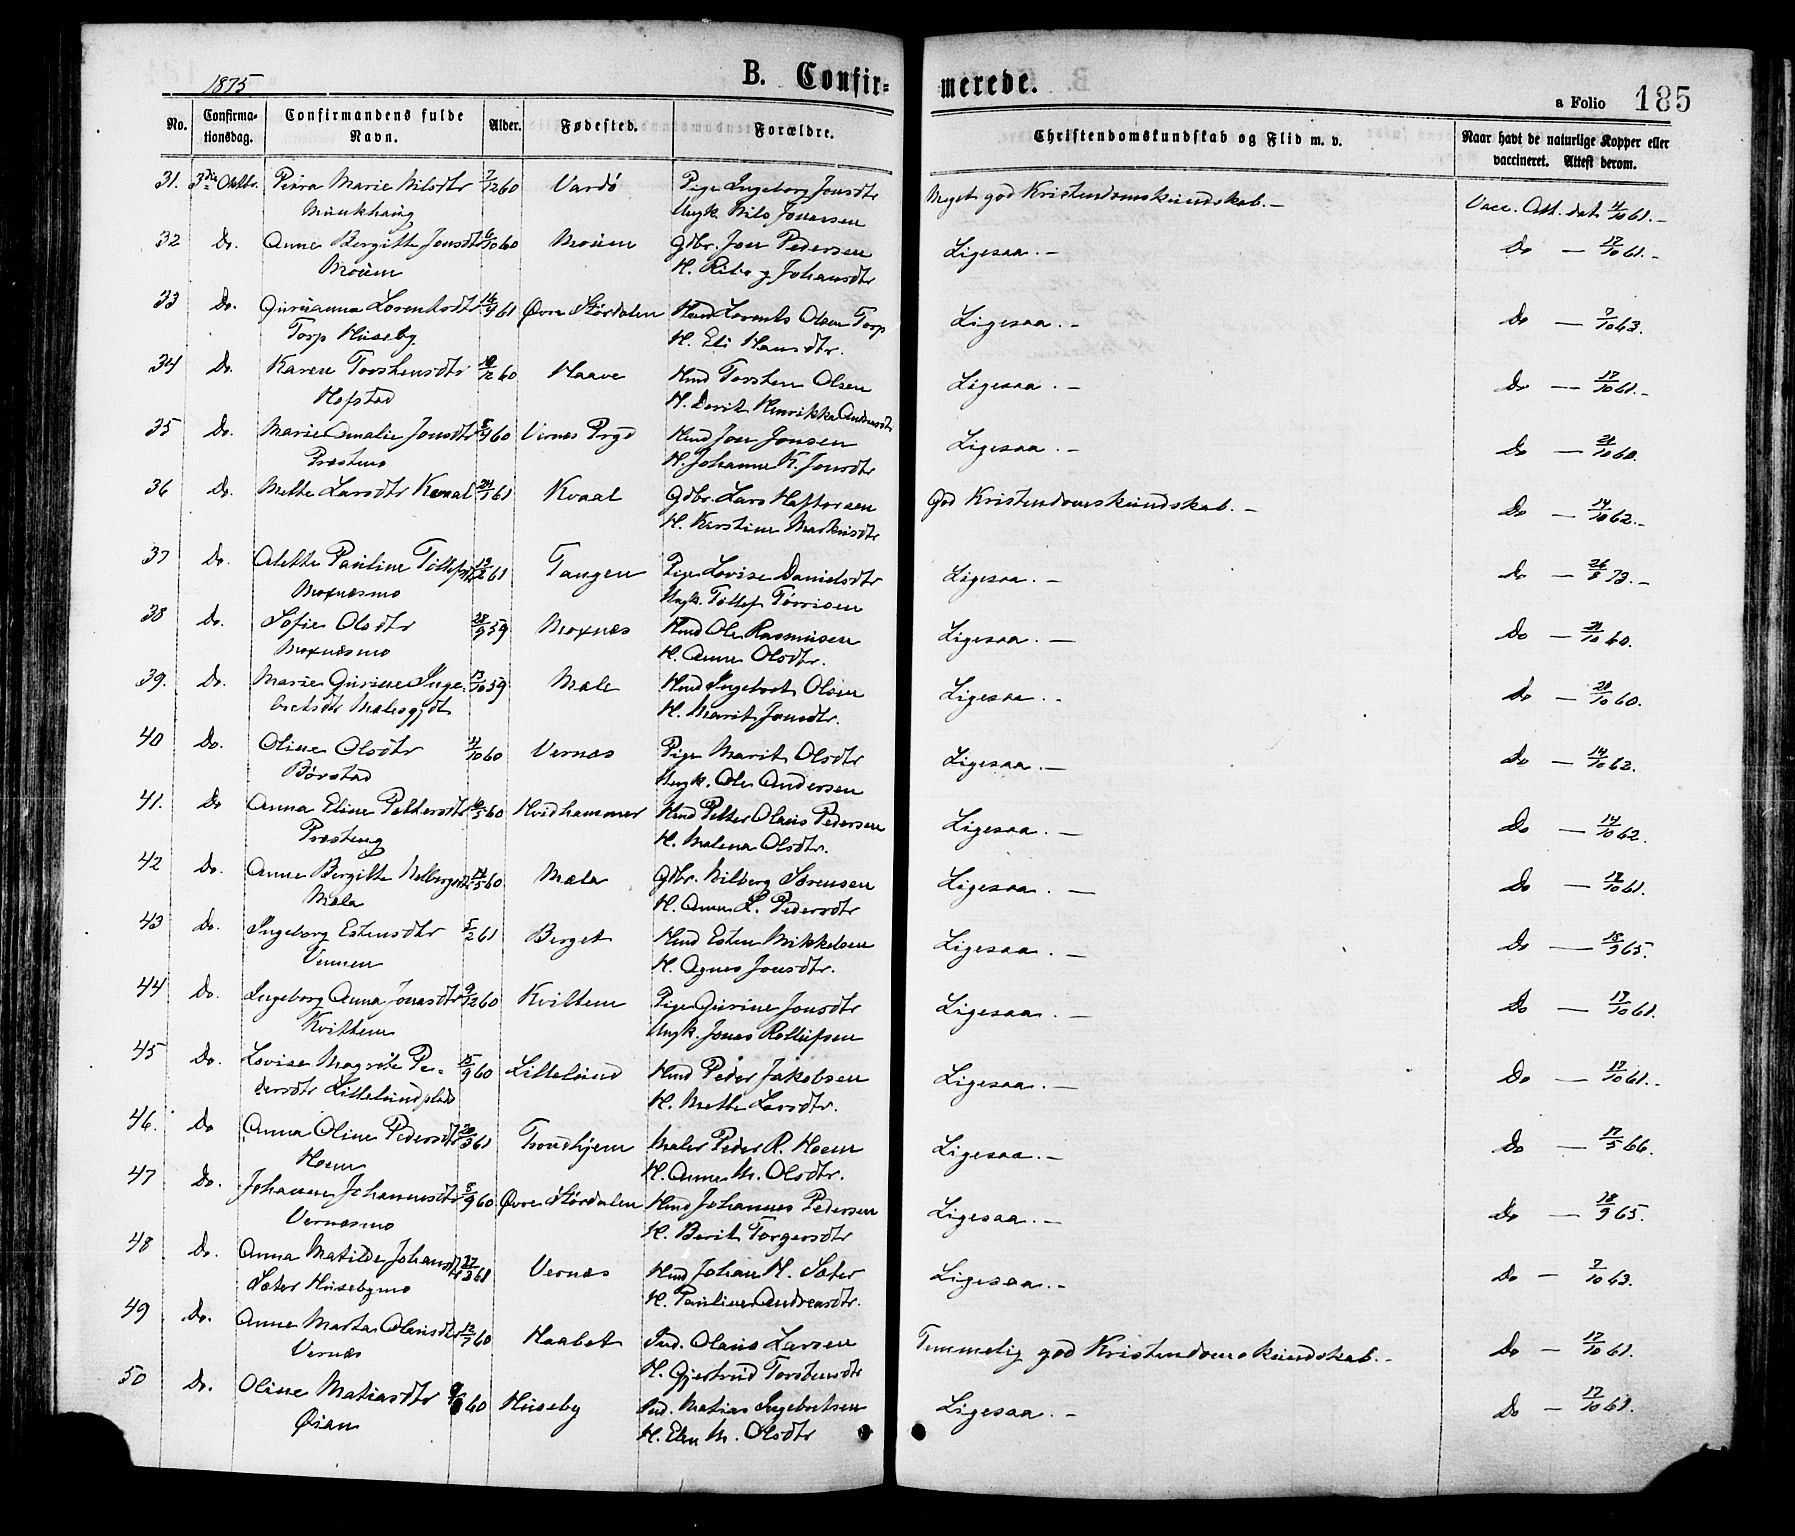 1875
B. Confir=
merede.
a Folio 185
No. Confirma- tionsdag. Confirmandens fulde Navn. Alder. Fødested. Forældre. Christendomskundskab og Flid m. v. Naar havt de naturlige Kopper eller vaccineret. Attest derom.
31. 3die Oktbr. Petra Marie Nilsdtr 7/12 60 Vardö Pige Ingeborg Jonsdtr Meget god Kristendomskundskab. — Vacc. Att. dat. 4/10 61. —
Munkhaug Ungk. Nils Jonassen
32 Do. Anne Bergitte Jonsdtr 6/10 60 Moum Gdbr. Jon Pedersen Ligesaa. — Do — 17/10 61. —
Moum H. Johansdtr
33 Do. Gurianna Lorentsdtr 14/9 61 Øvre Størdalen Hmd Lorents Olsen Torp Ligesaa. — Do — 7/10 63.
Torp Huseby H. Eli Hansdtr.
34 Do. Karen Torstensdtr 19/12 60 Haave Hmd Torsten Olsen Ligesaa. — Do — 17/10 61. —
Hofstad H. Berit Henrikka Andersdtr
35 Do. Marie Amalie Jonsdtr 8/9 60 Vernes Prgd Hmd Jon Jonsen Ligesaa. — Do — 21/10 60.
Præstmo H. Johanna K. Jonsdtr
36 Do. Mette Larsdtr Kvaal 24/1 61 Kvaal Gdbr. Lars Haftorsen God Kristendomskundskab. — Do — 14/10 62. —
H. Kirstine Markusdtr
37 Do. Alette Pauline Tollefsdtr 19/2 61 Tangen Pige Lovise Danielsdtr Ligesaa. — Do — 26/8 73. —
Moxnesmo Ungk. Tollef Tørrisen
38 Do. Sofie Olsdtr 28/9 59 Moxnæs Hmd Ole Rasmusen Ligesaa. — Do — 21/10 60.
Moxnæsmo H. Anne Olsdtr.
39. Do. Marie Gurine Inge- 17/10 59 Mæle Hmd Ingebret Olsen Ligesaa. — Do — 20/10 60.
bretsdtr Mælesgjdt H. Marit Jonsdtr.
40 Do. Oline Olsdtr 4/10 60 Vernæs Pige Marit Olsdtr Ligesaa. — Do — 14/10 62.
Børstad Ungk. Ole Andersen
41. Do Anna Eline Pettersdtr 16/5 60 Hvidhammer Hmd Petter Olaus Pedersen Ligesaa. — Do — 14/10 62.
Præsteng H. Malena Olsdtr.
42 Do. Anne Bergitte Nelbergsdtr 14/5 60 Mæla Gdbr. Nilberg Sørensen Ligesaa. — Do — 17/10 61.
Mæla H. Anne L. Pedersdtr
43 Do. Ingeborg Estensdtr 5/2 61 Berget Hmd Esten Mikkelsen Ligesaa. — Do — 18/9 65.
Vinnen H. Agnes Jonsdtr.
44 Do. Ingeborg Anna Jonasdtr 9/12 60 Kvittem Pige Gurine Jonsdtr Ligesaa. — Do — 17/10 61.
Kvittem Ungk. Jonas Rollufsen
45 Do. Lovise Magrete Pe- 15/9 60 Lillelund Hmd Peder Jakobsen Ligesaa. — Do — 17/10 61. —
dersdtr Lillelundplads H. Mette Larsdtr.
46. Do Anna Oline Pedersdtr 20/3 61 Trondhjem Maler Peder R. Hoem Ligesaa. — Do — 17/5 66.
Hoem H. Anne M. Olsdtr.
47 Do. Johanna Johannesdtr 8/9 60 Øvre Størdalen Hmd Johannes Pedersen Ligesaa. — Do — 18/9 65.
Vernæsmo H. Berit Torgersdtr
48 Do. Anna Matilde Johansdtr 27/3 61 Vernæs Hmd Johan H. Sæter Ligesaa. — Do — 7/10 63.
Sæter Husebymo H. Pauline Andreasdtr.
49 Do. Anne Marta Olausdtr 12/7 60 Haabet Ind. Olaus Larsen Temmelig god Kristendomskundskab. — Do — 17/10 61.
Vernæs H. Gjertrud Torstensdtr
50 Do. Oline Matiasdtr 60 Huseby Ind. Matias Ingebretsen Ligesaa. — Do — 17/10 61.
Øian H. Elen M. Olsdtr